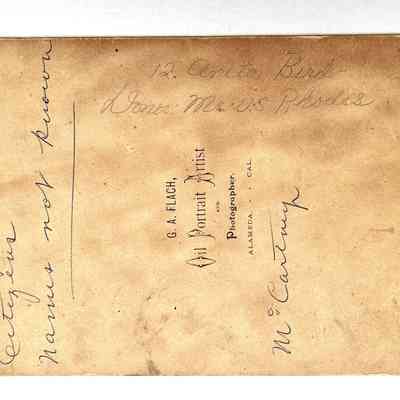 12. Anita Bird
Donor Mrs. V.S. Rhodes
Citizens
names not known
G. A. FLACH,
Oil Portrait Artist
AND
Photographer.
ALAMEDA, . . CAL.
McCartney